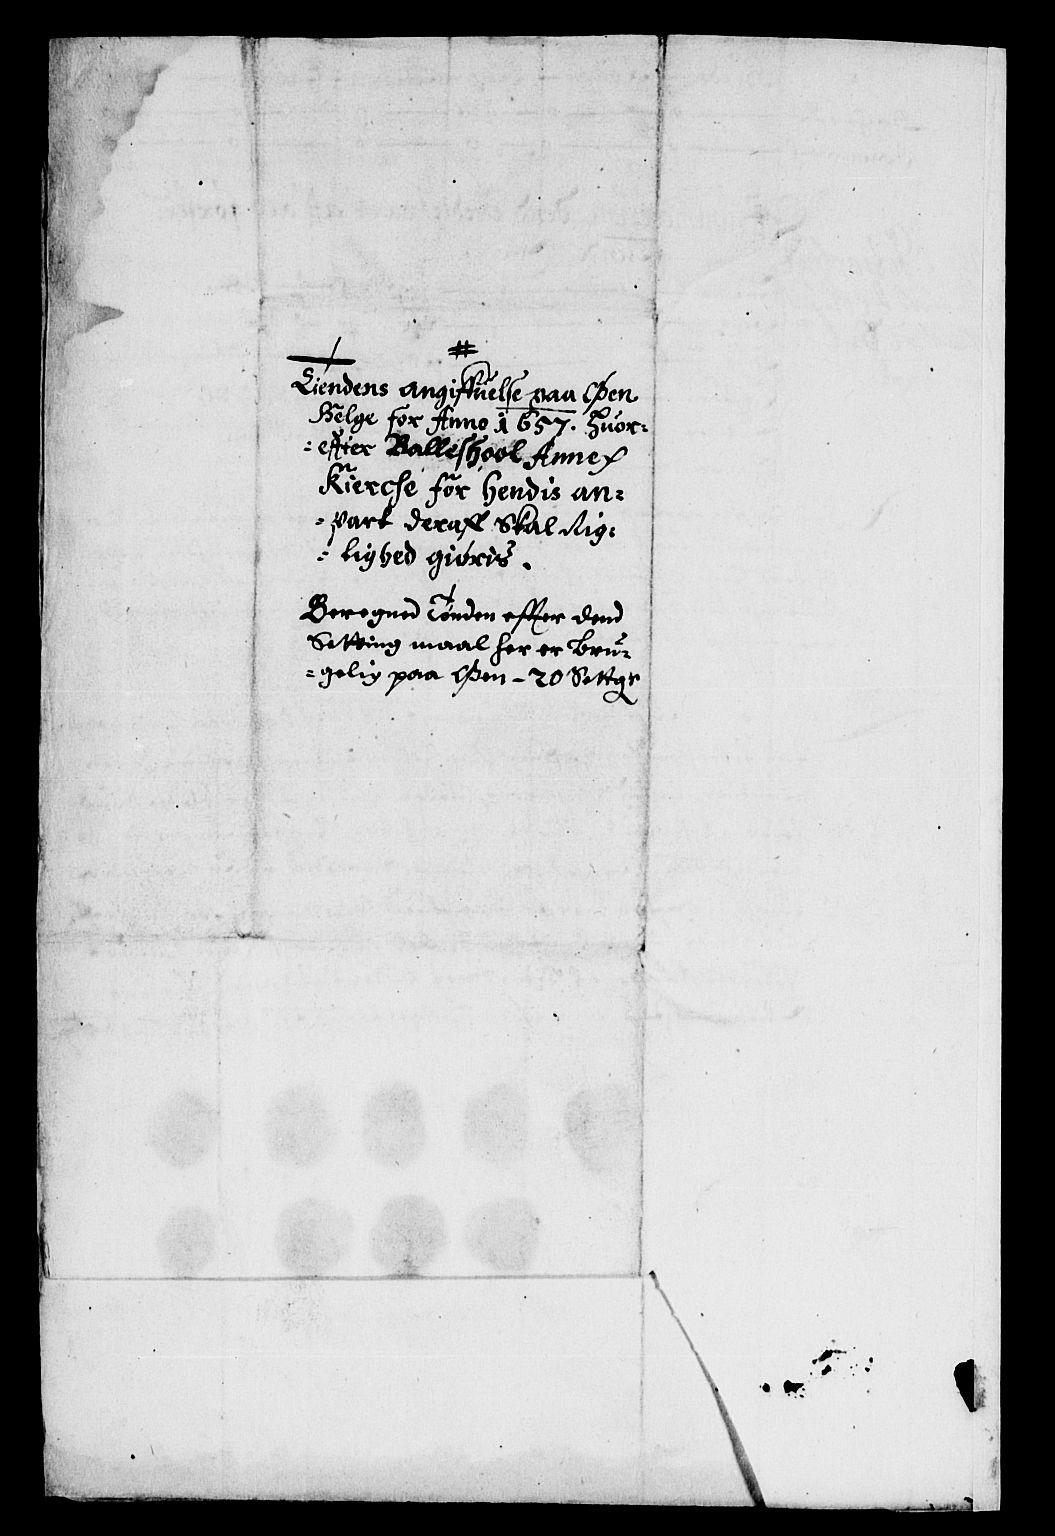 #
Tiendens angiffuelse paa Øen
Helge for Anno 1657. Huor-
- effter Balleshool Annex
Kiercke for hendis an-
- part deraff Skal Rig-
- tighed giøris.
Beregned Tønden effter dend
Setting maal her er bru-
- gelig paa Øen - 20 Settgr